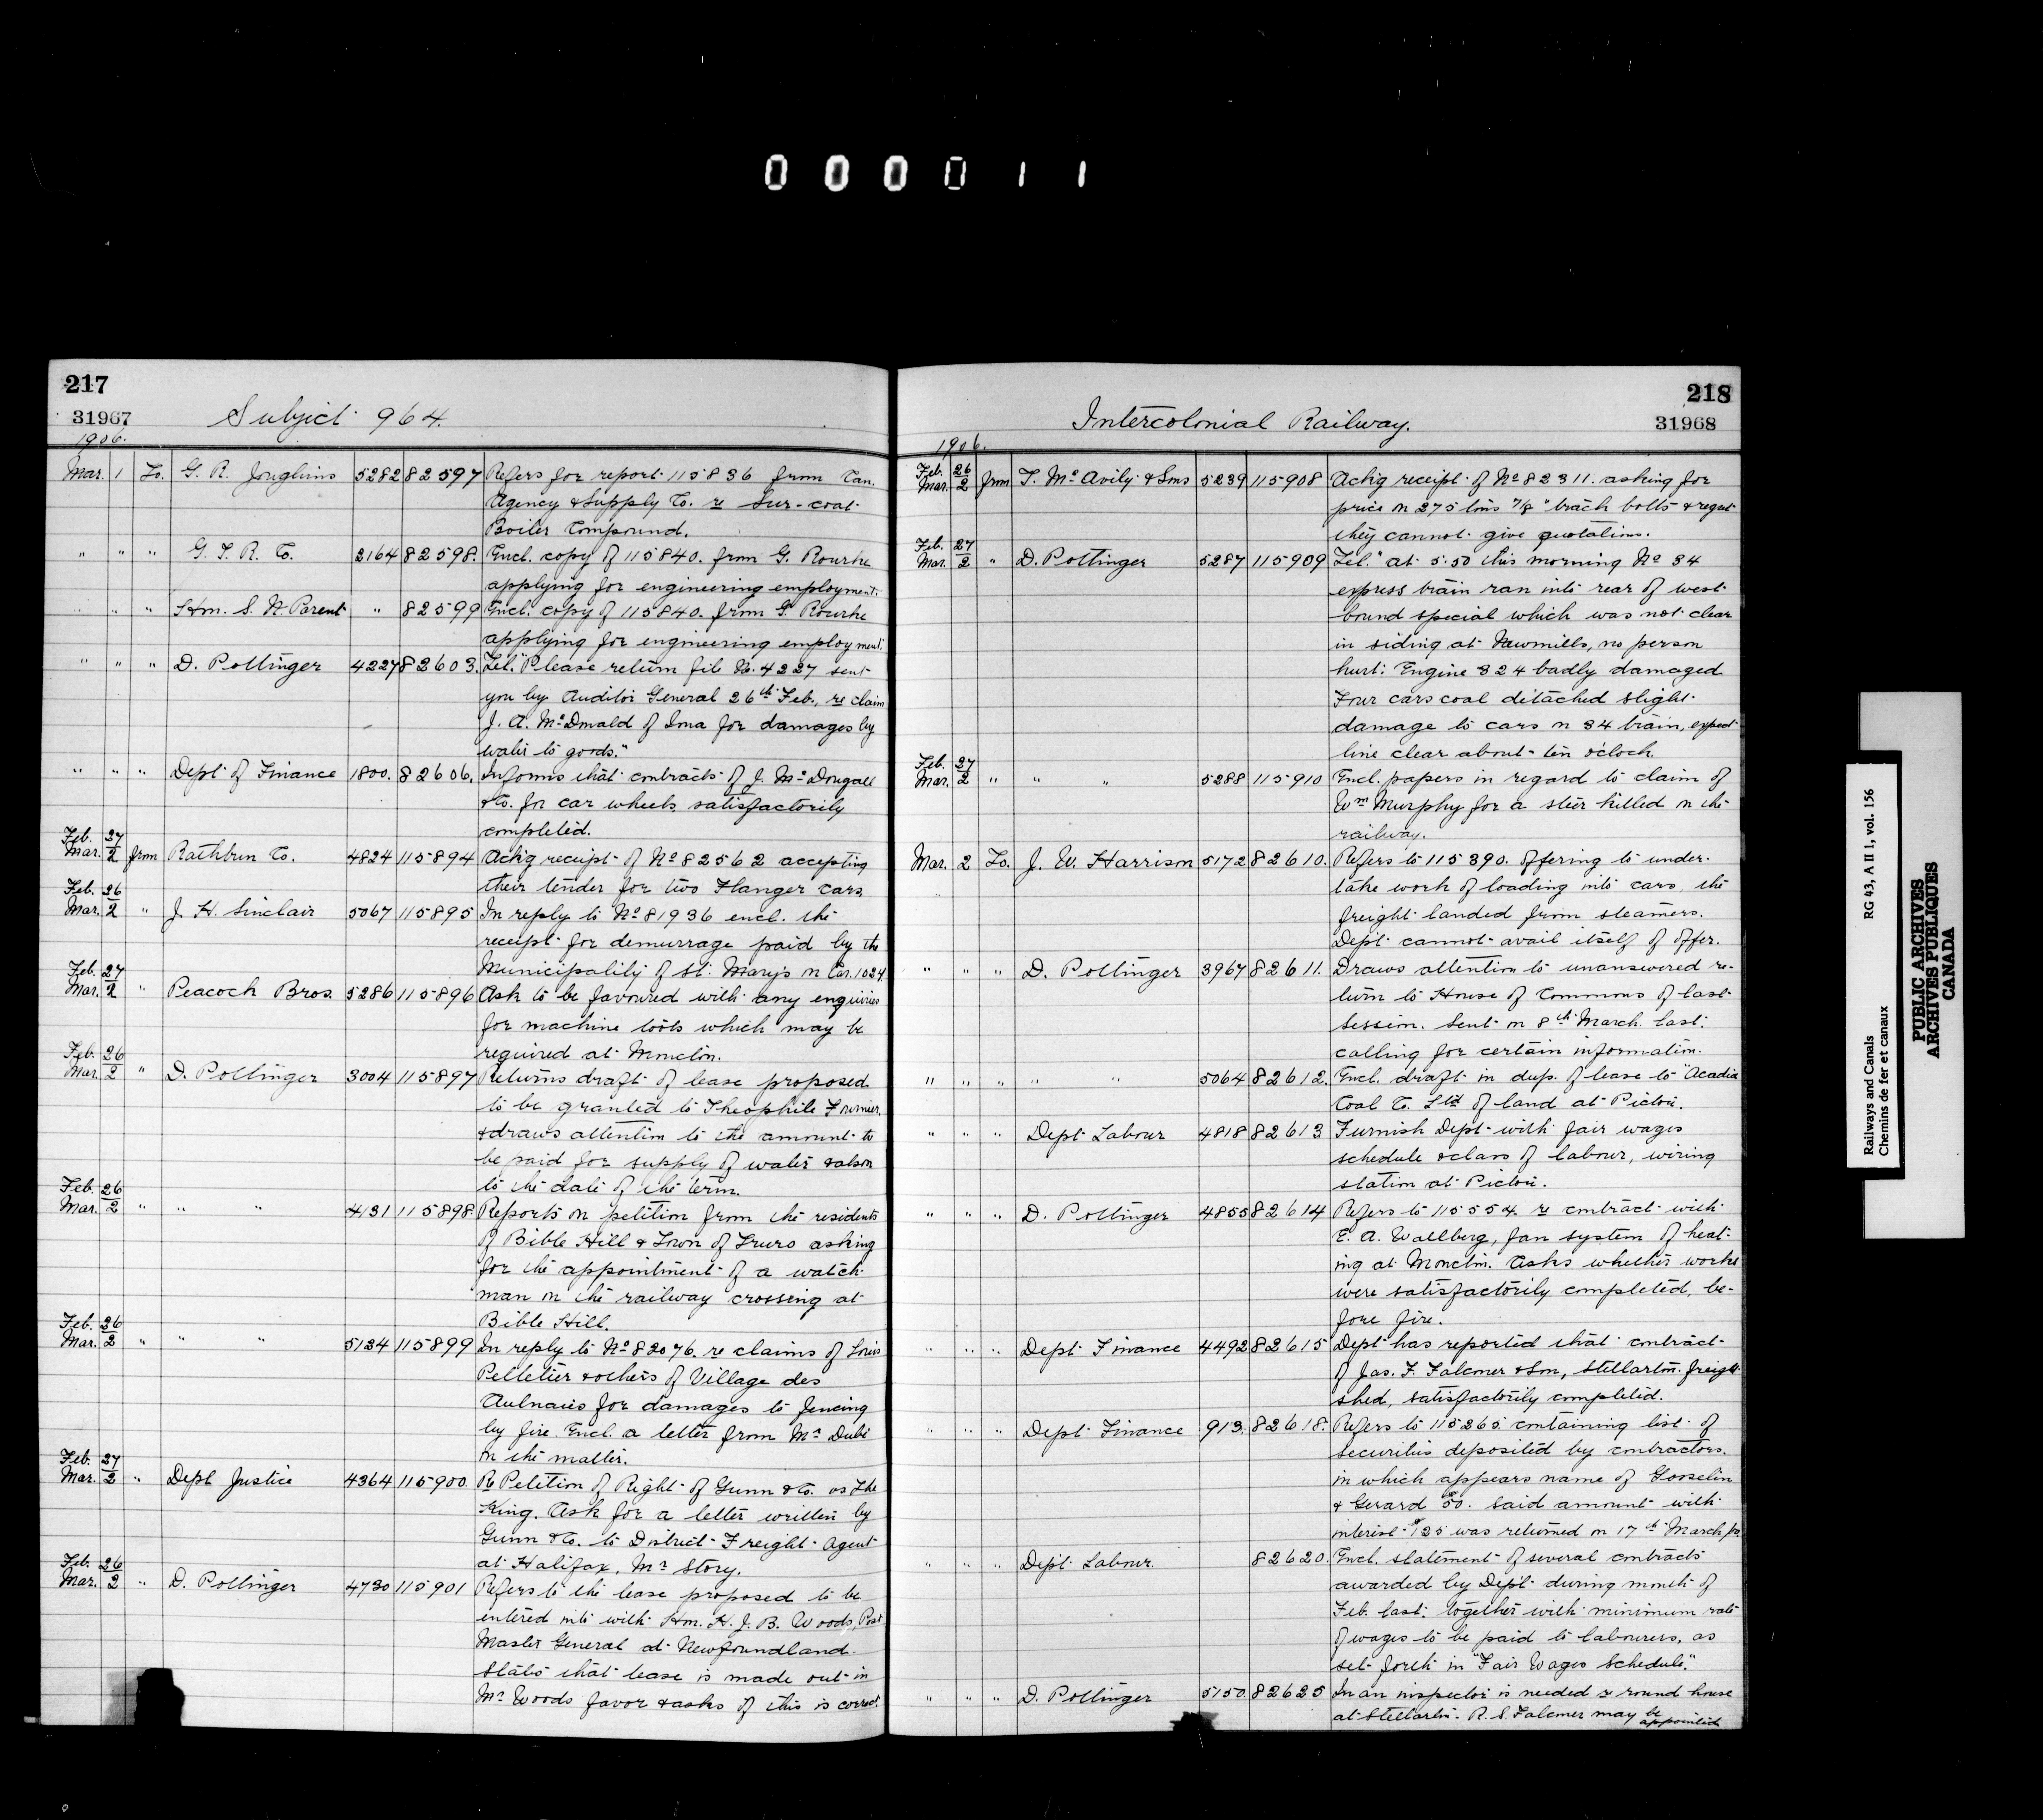 000011
217
31967
Subject 964.
1906.
Mar. 1 To. G. R. Joughins 5282 82597 Refers for report 115836 from Can.
Agency & Supply Co. re Sur-coat
Boiler Compound.
" " " G. T. R. Co. 2164 82598. Encl. copy of 115840. from G. Rourke
applying for engineering employment.
" " " Hon. S. N. Parent " 82599 Encl. copy of 115840. from G. Rourke
applying for engineering employment.
" " " D. Pottinger 4227 82603. Tel. "Please return file No. 4227 sent
you by Auditor General 26th Feb., re claim
J. A. McDonald of Iona for damages by
water to goods."
" " " Dept of Finance 1800. 82606. Informs that contracts of J. McDougall
& Co. for car wheels satisfactorily
completed.
Feb. 27
Mar. 2 from Rathbun Co. 4824 115894 Ack'g receipt of No 82562 accepting
their tender for two Flanger cars.
Feb. 26
Mar. 2 " J. H. Sinclair 5067 115895 In reply to No 81936 encl. the
receipt for demurrage paid by the
Municipality of St. Mary's on Car. 1024
Feb. 27
Mar. 2 " Peacock Bros. 5286 115896 Ask to be favoured with any enquiries
for machine tools which may be
required at Moncton.
Feb. 26
Mar. 2 " D. Pottinger 3004 115897 Returns draft of lease proposed
to be granted to Theophile Fournier,
& draws attention to the amount to
be paid for supply of water & also
to the date of the term.
Feb. 26
Mar. 2 " " " 4131 115898. Reports on petition from the residents
of Bible Hill & Town of Truro asking
for the appointment of a watch
man on the railway crossing at
Bible Hill.
Feb. 26
Mar. 2 " " " 5134 115899 In reply to No 82076. re claims of Louis
Pelletier & others of Village des
Aulnaies for damages to fencing
by fire. Encl. a letter from Mr Dubé
in the matter.
Feb. 27
Mar. 2 " Dept Justice 4364 115900. Re Petition of Right of Gunn & Co. vs The
King. Ask for a letter written by
Gunn & Co. to District Freight Agent
at Halifax, Mr Story.
Feb. 26
Mar. 2 " D. Pottinger 4730 115901 Refers to the lease proposed to be
entered into with Hon. H. J. B. Woods, Post
Master General at Newfoundland.
States that lease is made out in
Mr Woods favor & asks if this is correct.
218
Intercolonial Railway.
31968
1906.
Feb. 26
Mar. 2 from T. McAvity & Sons 5239 115908 Ack'g receipt of No 82311. asking for
price on 275 tons 7/8" track bolts & regret
they cannot give quotations.
Feb. 27
Mar. 2 " D. Pottinger 5287 115909 Tel. "at 5.50 this morning No 34
express train ran into rear of west
bound special which was not clear
in siding at Newmills, no person
hurt. Engine 324 badly damaged
Four cars coal ditached slight
damage to cars on 34 train, expect
line clear about ten o'clock.
Feb. 27
Mar. 2 " " " 5288 115910 Encl. papers in regard to claim of
Wm Murphy for a steer killed on the
railway.
Mar. 2 To. J. W. Harrison 5172 82610. Refers to 115390. offering to under-
take work of loading into cars, the
freight landed from steamers.
Dept cannot avail itself of offer.
" " " D. Pottinger 3967 82611. Draws attention to unanswered re-
turn to House of Commons of last
session. Sent on 8th March last.
calling for certain information.
" " " " " 5064 82612. Encl. draft in dup. of lease to "Acadia
Coal Co. Ltd of land at Pictou.
" " " Dept Labour 4818 82613 Furnish Dept with fair wages
schedule & class of labour, wiring
station at Pictou.
" " " D. Pottinger 4855 82614 Refers to 115554. re contract with
E. A. Wallberg, fan system of heat-
ing at Moncton. Asks whether works
were satisfactorily completed, be-
fore fire.
" " " Dept Finance 4492 82615 Dept has reported that contract
of Jas. F. Falconer & Son, Stellarton freight
shed, satisfactorily completed.
" " " Dept Finance 913. 82618. Refers to 115265. containing list of
securities deposited by contractors.
in which appears name of Gosselin
& Gerard $50. Said amount with
interest $135 was returned on 17th March
" " " Dept Labour. 82620. Encl. statement of several contracts
awarded by Dept during month of
Feb. last. together with minimum rate
of wages to be paid to labourers, as
set forth in "Fair Wages Schedule."
" " " D. Pottinger 5150. 82625 In an inspector is needed re round house
at Stellarton. R. S. Falconer may be
appointed
Railways and Canals
Chemins de fer et canaux
RG 43, A II 1, vol. 156
PUBLIC ARCHIVES
ARCHIVES PUBLIQUES
CANADA